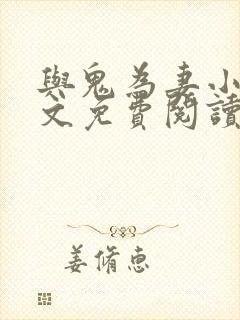 與鬼為妻小
文免費閱讀
姜脩惠